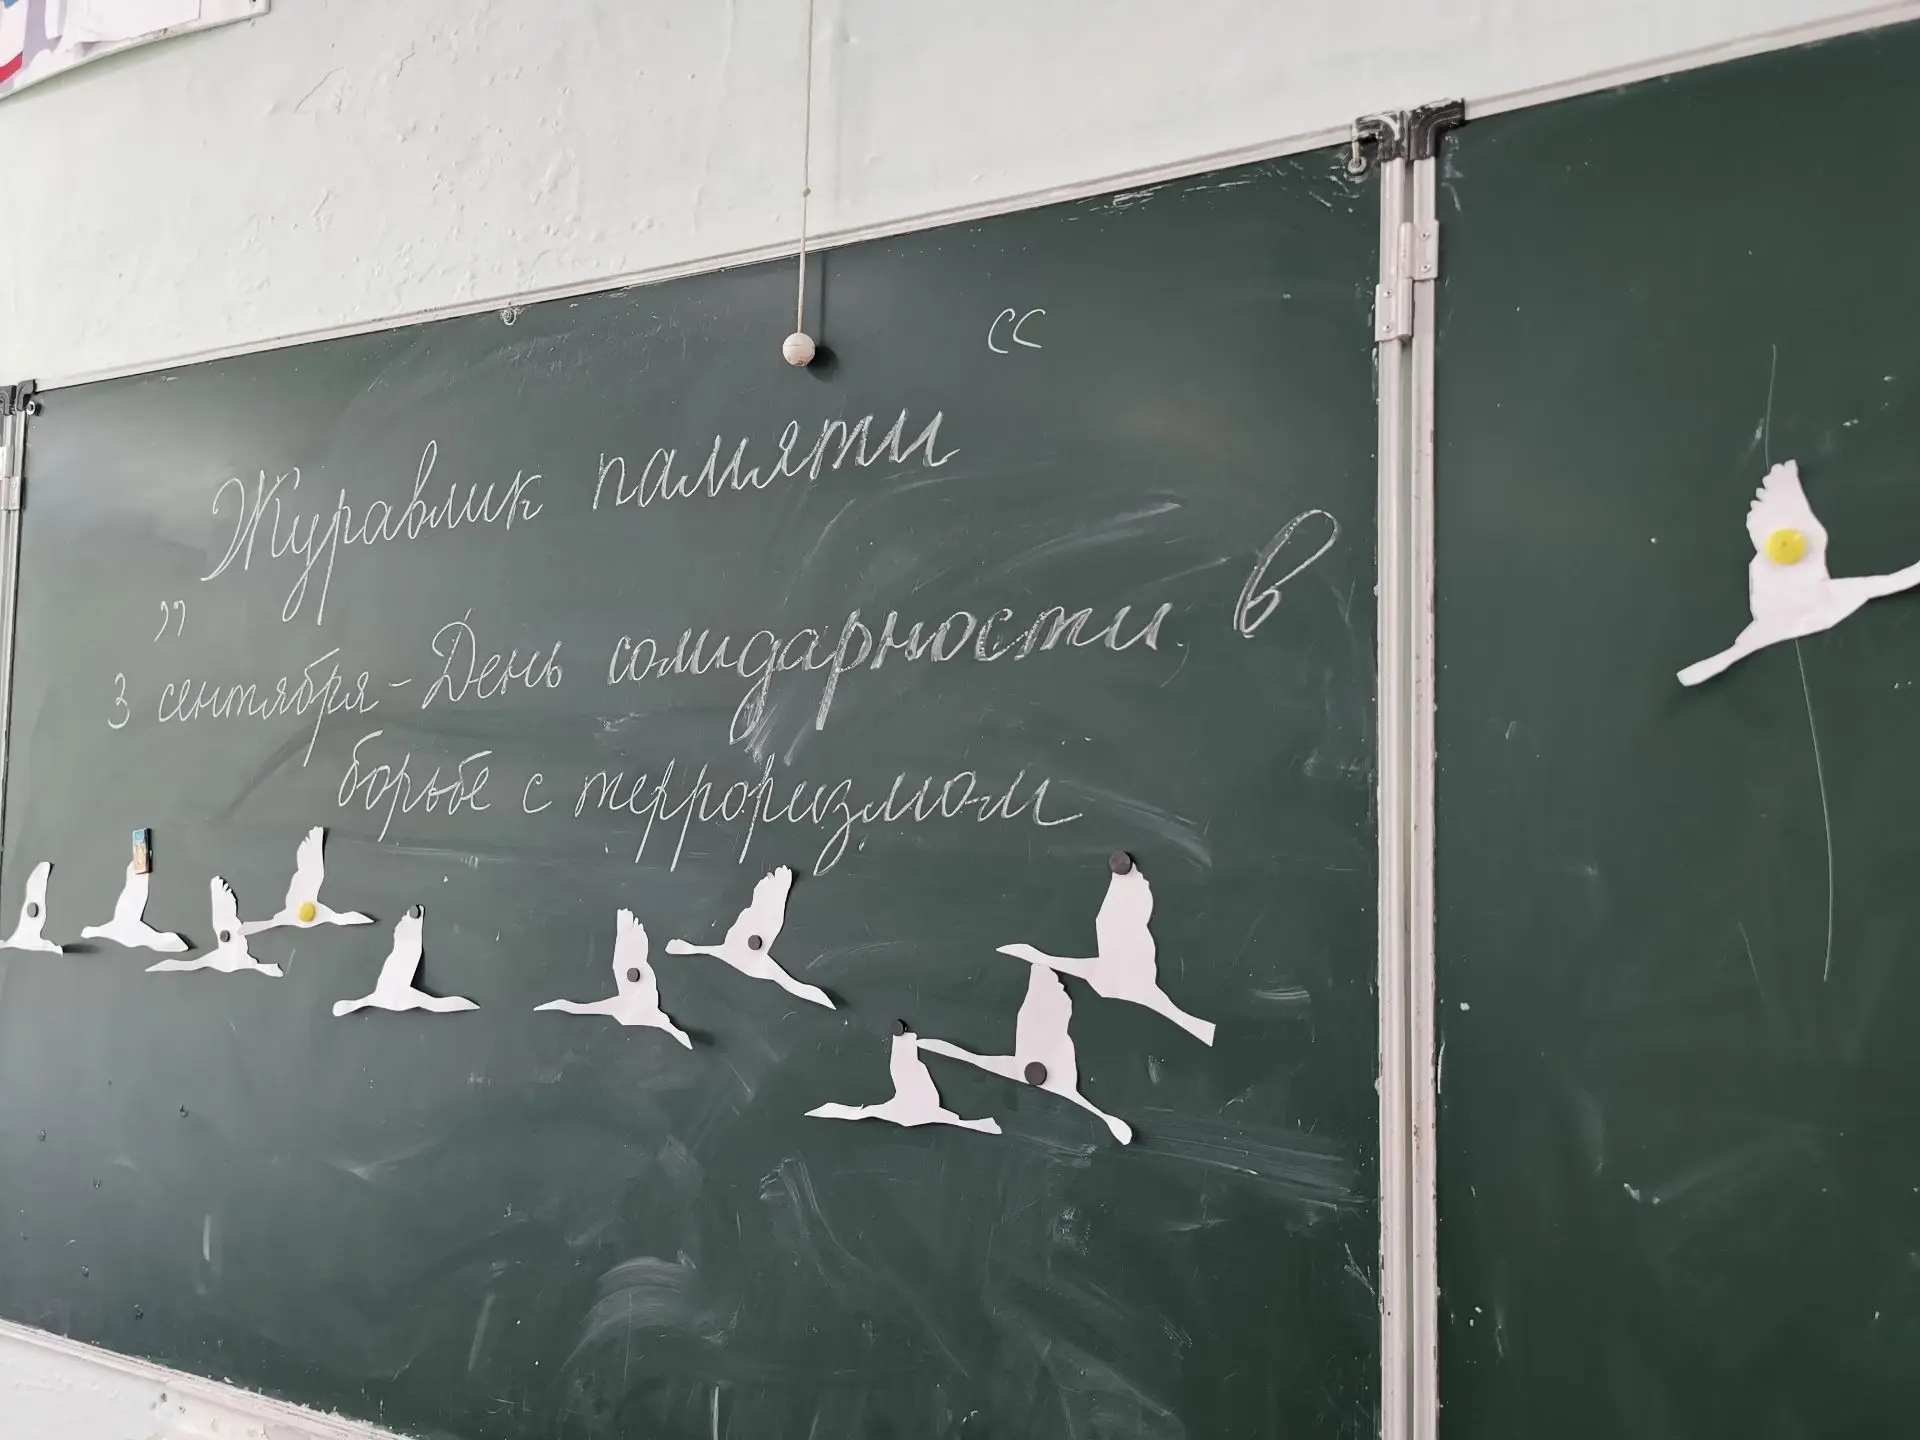 „Журавлик памяти“
3 сентября - День солидарности в
борьбе с терроризмом